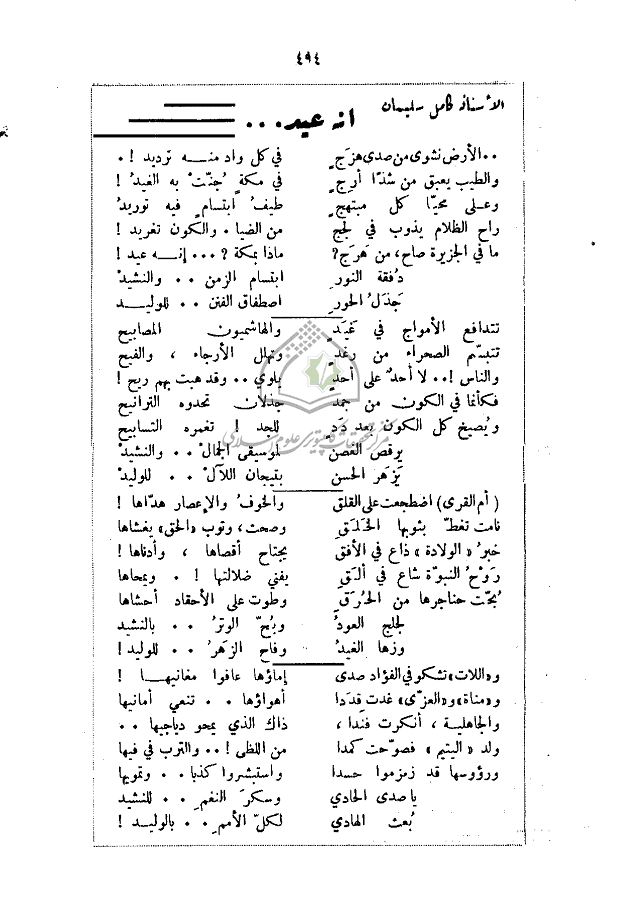 ٤٩٤
الأستاذ كامل سليمان
انه عيد . . .
. . الأرض نشوى من صدى هزَجٍ في كل واد منـه ترديد ! .
والطيب يعبق من شذا أرجٍ في مكة جُنّت به الغيدُ !
وعلى محيّا كل مبتهجٍ طيفُ ابتسام فيه توريدُ
راح الظلام يذوب في لججٍ من الضيا . والكون تغريد !
ما في الجزيرة صاح، من هَرَجٍ؟ ماذا بمكة ؟ ... إنـه عيد !
دُفقة النورِ ابتسام الزمن . . والنشيدْ
جَذَلُ الحورِ اصطفاق الفتن . . للوليـدْ
تتدافع الأمواج في غَيَدٍ والهاشميون المصابيح
تتبسّم الصحراء من رغدٍ وتهلل الأرجاء ، والفيح
والناس ! . . لا أحدٌ على أحدٍ يلوي . . وقد هبت بهم ريح !
فكأنما في الكون من جمدٍ جذلان تحدوه الترانيح
ويُصيخ كل الكون بعد دَدٍ للجد ! تغمره التسابيح
يرقص الغصن لموسيقى الجمال . . والنشيدْ
يَزهَر الحسن بتيجان اللآل . . للوليدْ
( أم القرى ) اضطجعت على القلق والخوفُ والإعصار هدّاها !
نامت تغطّ بثوبها الخَلَقِ وصحت ، وثوب «الحق» يغشاها
خبرُ «الولادة» ذاع في الأفق يجتاح أقصاها ، وأدناها !
رَوْحُ النبوّة شاع في ألَقٍ يفني ضلالتها ! . ويمحاها
بُحّت حناجرها من الحُرَقِ وطوت على الأحقاد أحشاها
لجلج العودُ وبُحّ الوترُ . . بالنشيد
وزها الغيدُ وفاح الزهَرُ . . للوليد !
و«اللات» تشكو في الفؤاد صدى إماؤها عافوا مغانيهـا !
و«مناة» و«العزّى» غدت قِدَدا أهواؤها . . تنعي أمانيها
والجاهلية ، أنكرت فندا ، ذاك الذي يمحو دياجيها . .
ولد «اليتيم» فصوّحت كمدا من اللظى ! . . والترب في فيها
ورؤوسها قد زمزموا حسدا واستبشروا كذبا . . وتمويها
يا صدى الحادي وسكرَ النغمِ . . للنشيد
بُعث الهادي لكلّ الأممِ . . بالوليـد !
مركز تحقيقات كامپيوترى علوم اسلامى